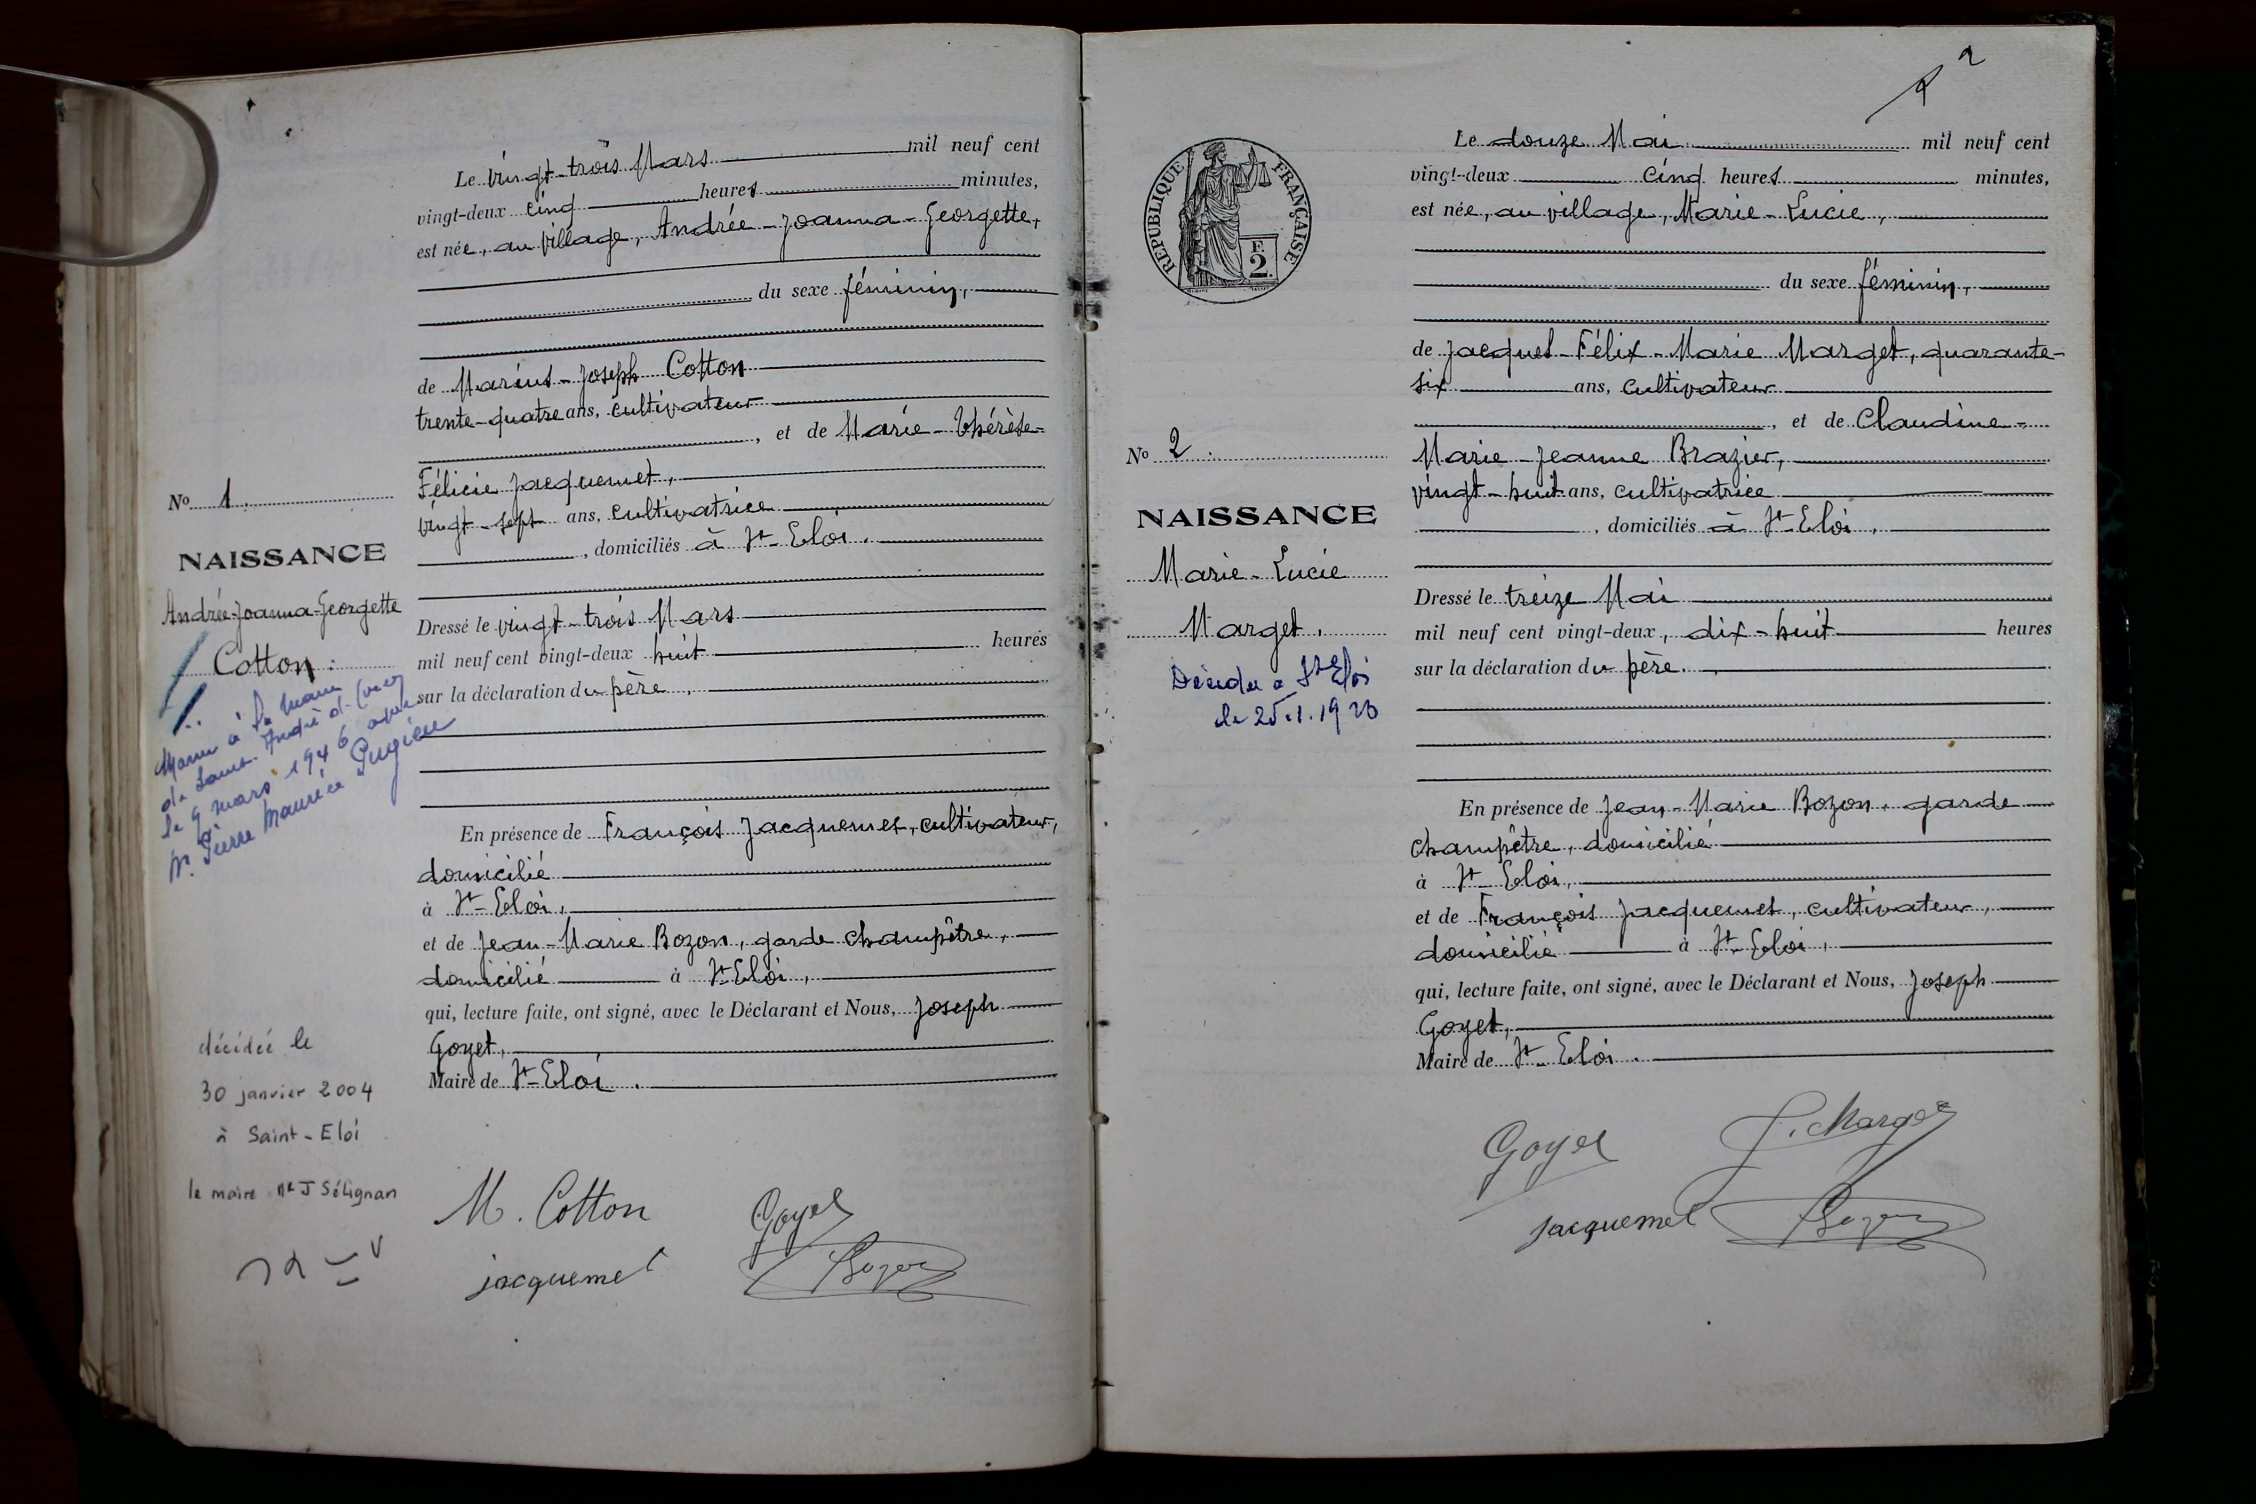 Le vingt-trois Mars mil neuf cent
vingt-deux cinq heures minutes,
est née, au village, Andrée-Joanna-Georgette,
du sexe féminin,
de Marius-Joseph Cotton
trente-quatre ans, cultivateur
, et de Marie-Thérèse-
Félicie Jacquemet,
vingt-sept ans, cultivatrice
, domiciliés à St-Eloi.
Dressé le vingt-trois Mars
mil neuf cent vingt-deux huit heures
sur la déclaration du père,
En présence de François Jacquemet, cultivateur,
domicilié
à St-Eloi,
et de Jean-Marie Bozon, garde champêtre,
domicilié à St-Eloi,
qui, lecture faite, ont signé, avec le Déclarant et Nous, Joseph
Goyet,
Maire de St-Eloi.
No 1.
NAISSANCE
Andrée-Joanna-Georgette
Cotton.
à la
de Saint André d
le 9 mars 1946 avec
Mr. Pierre Maurice
décédée le
30 janvier 2004
à Saint-Eloi
le maire Mr J Sélignan
M. Cotton Goyet
jacquemet Bozon
2
REPUBLIQUE FRANÇAISE
F.
2
Le douze Mai mil neuf cent
vingt-deux cinq heures minutes,
est née, au village, Marie-Lucie,
du sexe féminin,
de Jacques-Félix-Marie Marget, quarante-
six ans, cultivateur
, et de Claudine-
Marie-Jeanne Brazier,
vingt-huit ans, cultivatrice
, domiciliés à St-Eloi,
Dressé le treize Mai
mil neuf cent vingt-deux, dix-huit heures
sur la déclaration du père.
En présence de Jean-Marie Bozon, garde
champêtre, domicilié
à St-Eloi,
et de François Jacquemet, cultivateur,
domicilié à St-Eloi,
qui, lecture faite, ont signé, avec le Déclarant et Nous, Joseph
Goyet,
Maire de St-Eloi.
No 2.
NAISSANCE
Marie-Lucie
Marget.
Décédée à St Eloi
le 25.1.1923
Goyet F. Marget
jacquemet Bozon